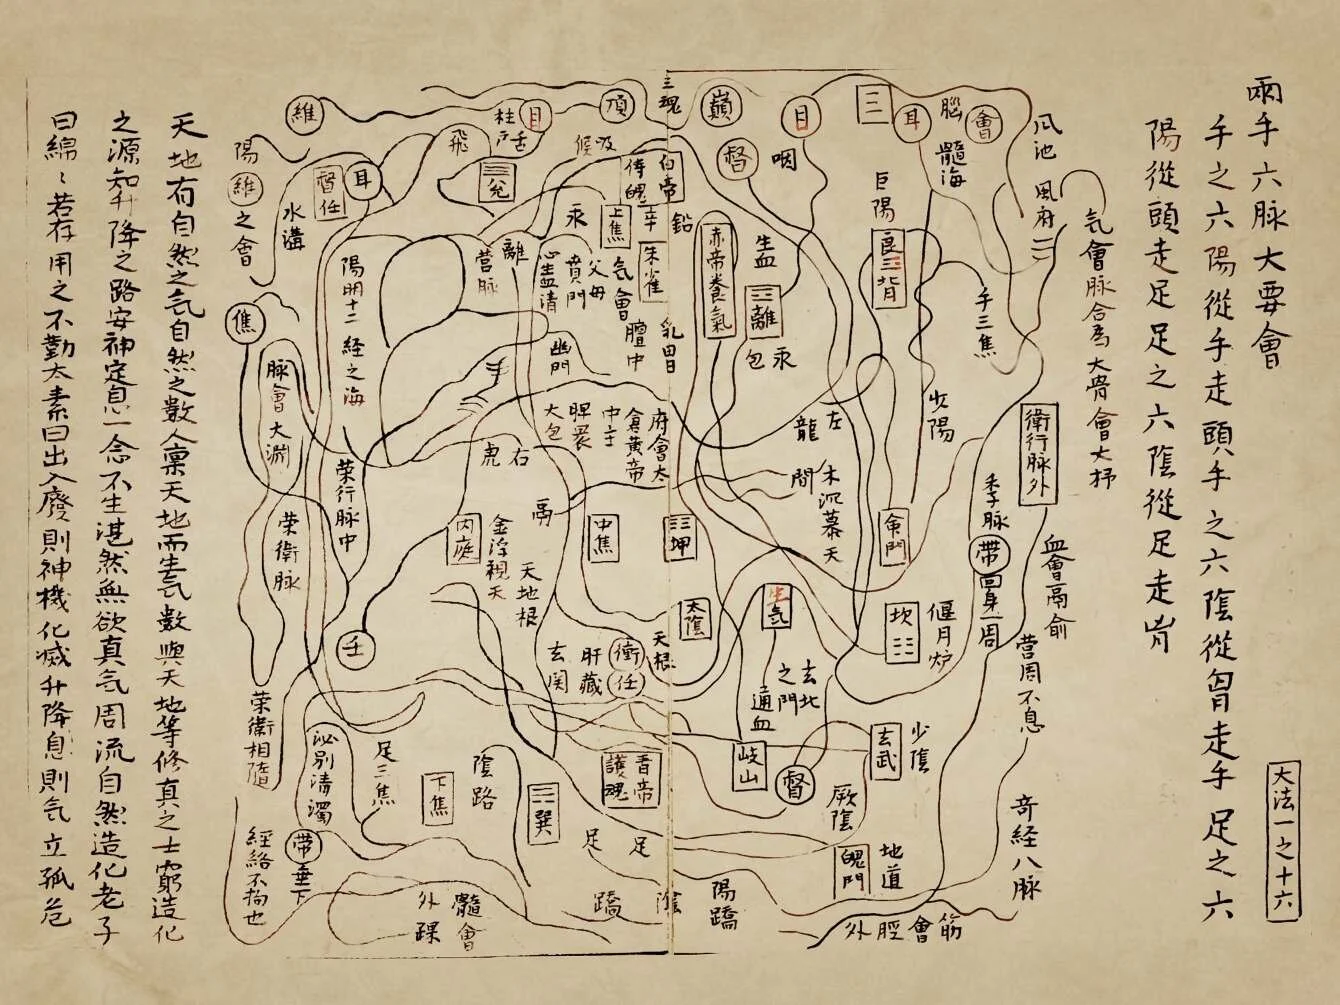 兩手六脈大要會
手之六陽從手走頭手之六陰從胷走手足之六
陽從頭走足足之六陰從足走肯
大法一之十六
气會脈合爲大骨會大杼
風池
風府二二
腦
會
髓海
耳
三
目
咽
巔
督
三魂
頂
吸候
目
柱戶舌
飛
三兌
維
陽維之會
督任
耳
水溝
巨陽
艮三背
手三焦
少陽
生血
三離
汞
包
赤帝養氣
鉛
白帝侍魄
辛
朱雀
上焦
气會膻中
乳畨
汞
父母
賁門
心生血清
離
营脉
陽明十二經之海
焦
脉會大淵
幽門
手
府會太倉黄帝
中主
脾裹大包
右
虎
左
龍
衛行脉外
季脉
帶
回身一周
血會鬲俞
营周不息
木沉慕天
間
命門
坎三
偃月炉
鬲
中焦
三坤
内庭
金浮視天
天地根
荣行脉中
荣衛脉
壬
太陰
生气
天根
衝任
肝藏
玄関
玄北之門
通血
荣衛相隨
泌别清濁
足三焦
下焦
陰路
三巽
青帝護魂
岐山
督
玄武
少陰
厥陰
魄門
地道
奇経八脉
經絡不拘也
帶
垂下
足
足
外踝
髓會
蹻
陰
陽蹻
外脛會筋
天地有自然之气自然之数人稟天地而生气数與天地等修真之士窮造化
之源知升降之路安神定息一念不生湛然無欲真气周流自然造化老子
曰綿〻若存用之不勤太素曰出入廢則神機化滅升降息則气立孤危